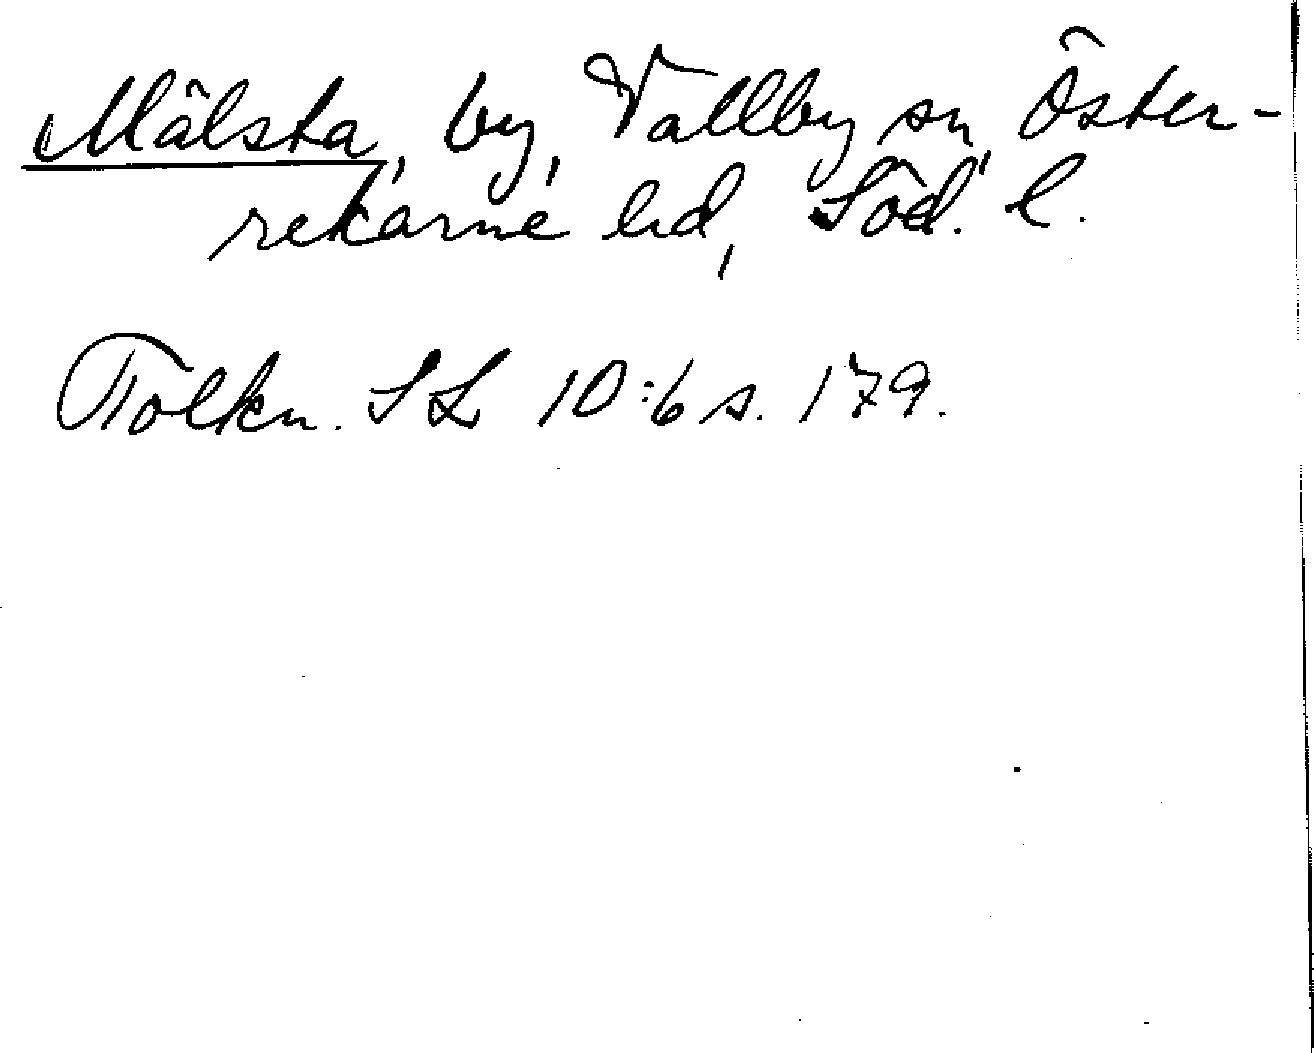 Mälsta, by, Vallby sn, Öster-
rekarne hd, Söd. l.
Tolkn. SL 10:6 s. 179.